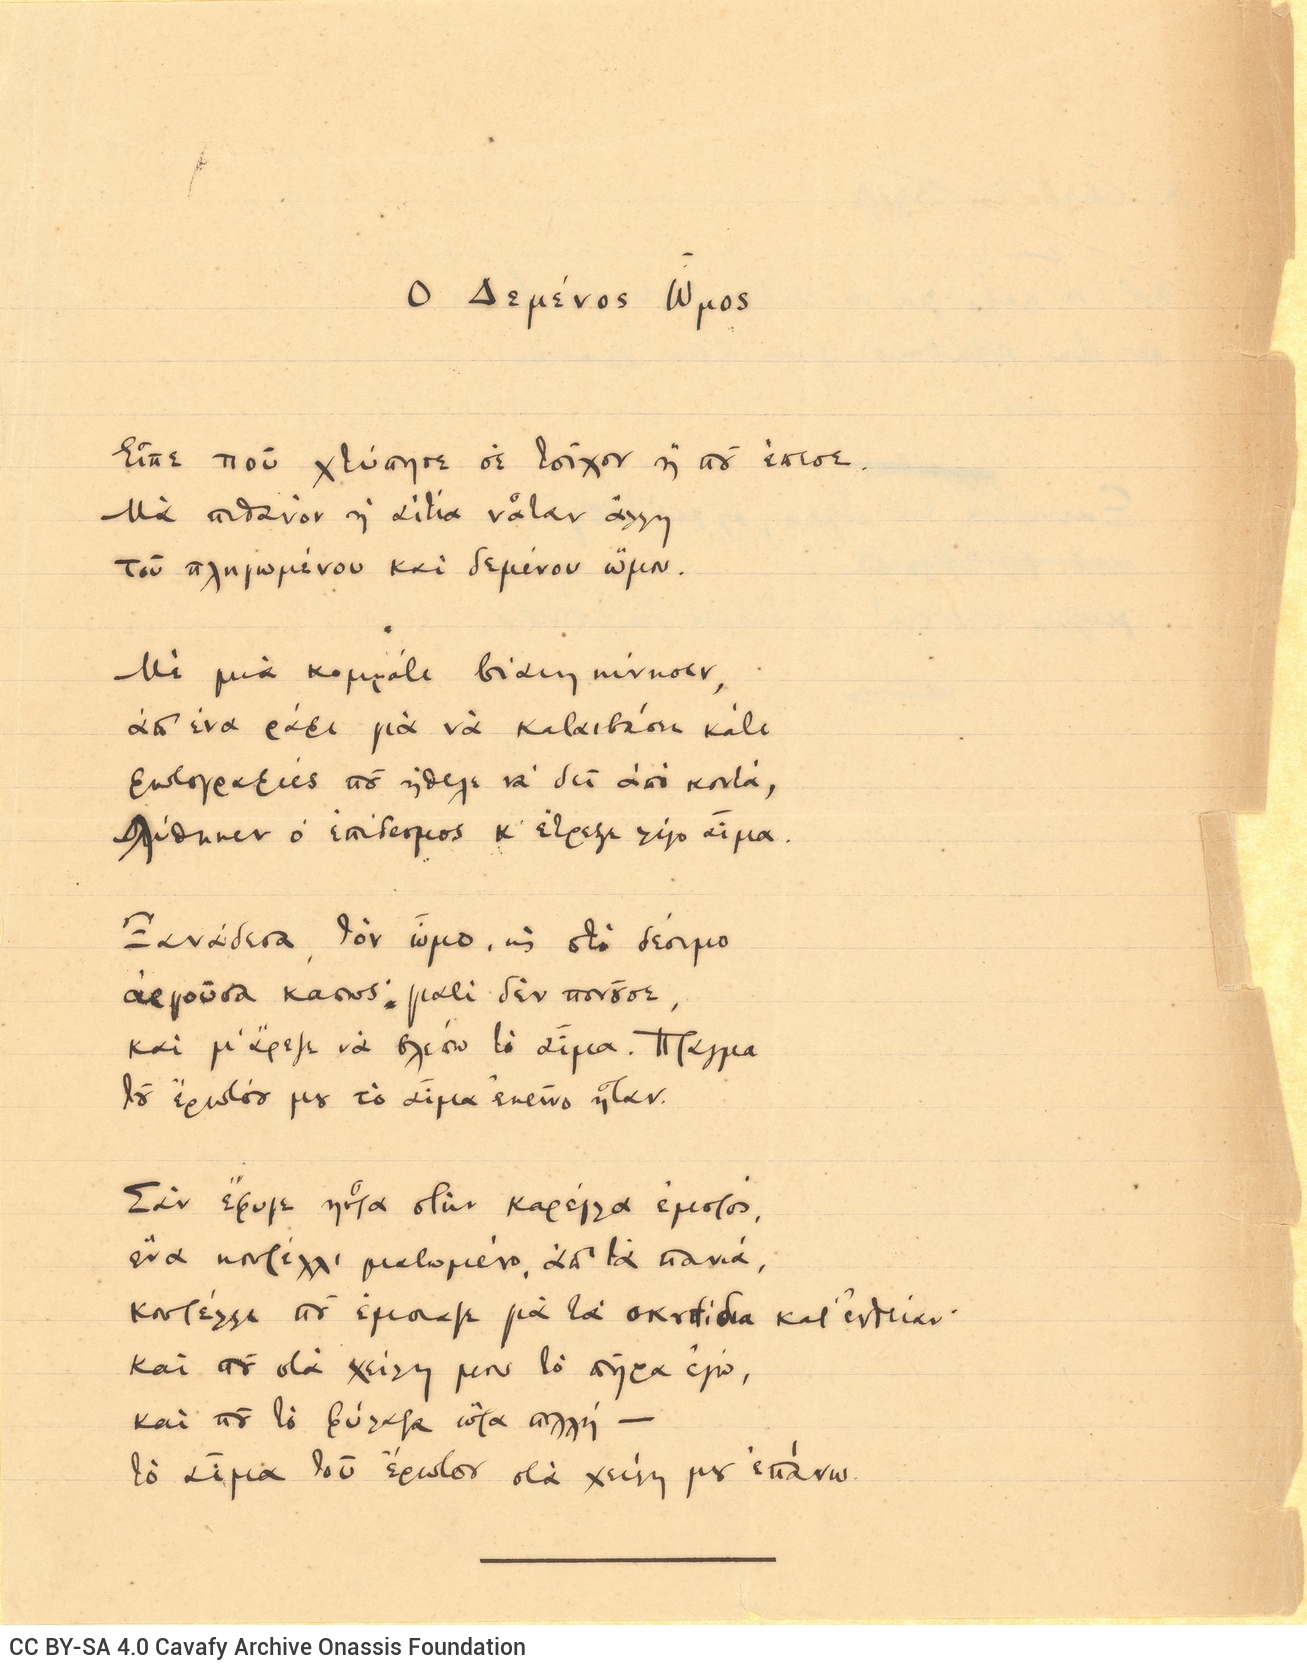 Ο Δεμένος Ὦμος
Εἶπε ποῦ χτύπησε σὲ τοῖχον ἢ ποῦ ἔπεσε.
Μὰ πιθανὸν ἡ αἰτία νἆταν ἄλλη
τοῦ πληγωμένου καὶ δεμένου ὤμου.
Μὲ μιὰ κομμάτι βίαιη κίνησιν,
ἀπ' ἕνα ράφι γιὰ νὰ καταιβάσει κάτι
φωτογραφίες ποῦ ἤθελε νὰ δεῖ ἀπὸ κοντά,
λύθηκεν ὁ ἐπίδεσμος κ' ἔτρεξε λίγο αἷμα.
Ξανάδεσα τὸν ὦμο, κὶ στὸ δέσιμο
ἀργοῦσα κάπως· γιατὶ δὲν πονοῦσε,
καὶ μ' ἄρεζε νὰ βλέπω τὸ αἷμα. Πρᾶγμα
τοῦ ἔρωτός μου τὸ αἷμα ἐκεῖνο ἦταν.
Σὰν ἔφυγε ηὗρα στὴν καρέγλα ἐμπρός,
ἕνα κουρέλλι ματωμένο, ἀπ' τὰ πανιά,
κουρέλλι ποῦ ἔμοιαζε γιὰ τὰ σκουπίδια κατ' εὐθείαν·
καὶ ποῦ στὰ χείλη μου τὸ πῆρα ἐγώ,
καὶ ποῦ τὸ φύλαξα ὥρα πολλή —
τὸ αἷμα τοῦ ἔρωτος στὰ χείλη μου ἐπάνω.
CC BY-SA 4.0 Cavafy Archive Onassis Foundation